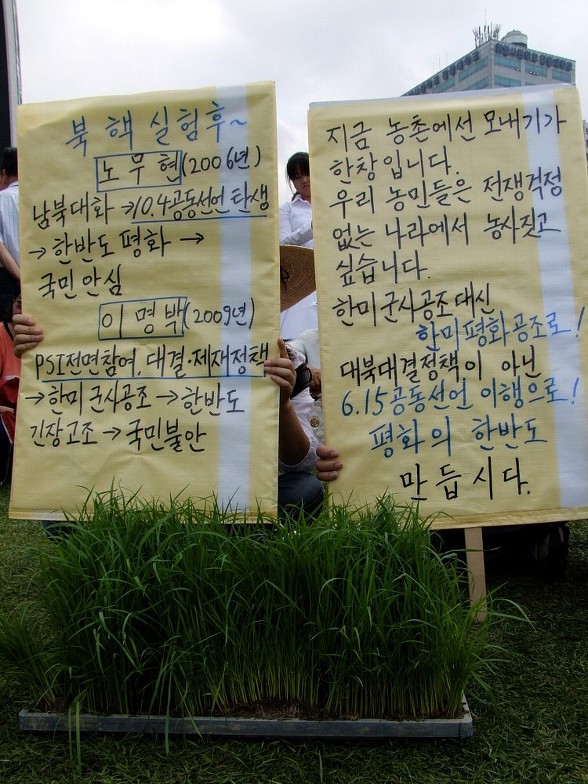 북 핵 실험후~
노무현(2006년)
남북대화 →10.4공동선언 탄생
→ 한반도 평화 →
국민안심
이명박(2009년)
PSI전면참여, 대결·제재정책
→한미군사공조→한반도
긴장고조→국민불안
지금 농촌에선 모내기가
한창입니다.
우리 농민들은 전쟁걱정
없는 나라에서 농사짓고
싶습니다.
한미군사공조 대신
한미평화공조로!
대북대결정책이 아닌
6.15공동선언 이행으로!
평화의 한반도
만듭시다.